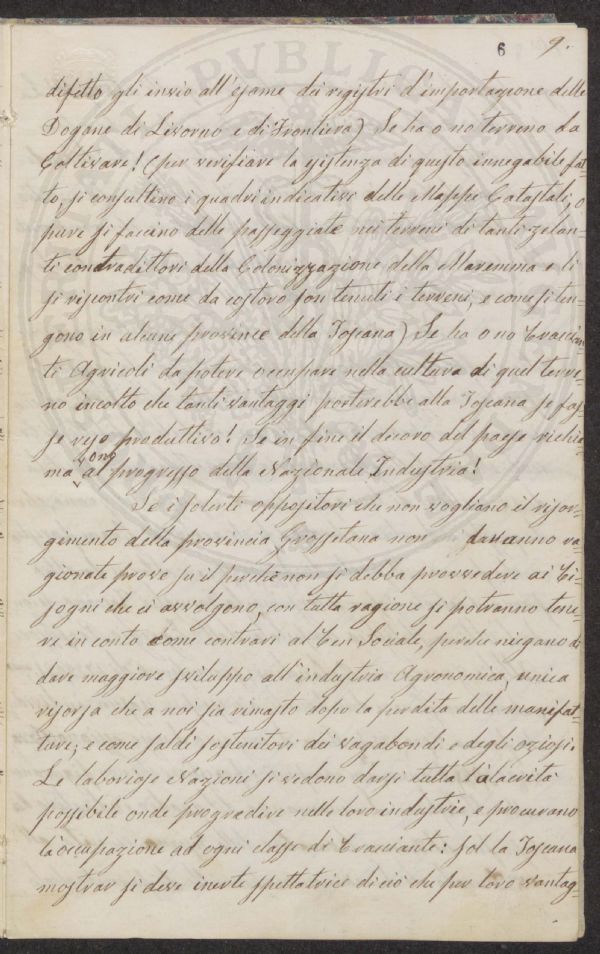 6 9.
difetto gli invio all'esame dei rigistri d'importazione delle
Dogane di Livorno e di Frontiera) Se ha o no terreno da
Coltivare! (per verifiare la esistenza di questo innegabile fat=
to, si consultino i quadri indicativi delle Mappe Catastali, o
pure si faccino delle passeggiate nei terreni di tanti zelan=
ti contradittori della Colonizzazione della Maremma e li
si riscontri come da costoro son tenuti i terreni, e come si ten=
gono in alcune province della Toscana) Se ha o no braccian
ti Agricoli da potere occupare nella cultura di quel terre=
no incolto che tanti vantaggi porterebbe alla Toscana se fos=
se reso produttivo! Se in fine il decoro del paese richia=
ma al progresso della Nazionale Industria!
Se i solerti oppositori che non vogliano il risor=
gimento della provincia Grossetana non daranno ra=
gionate prove su il perchè non si debba provvedere ai bi=
sogni che ci avvolgono, con tutta ragione si potranno tene=
re in conto come contrari al ben Sociale, perche niegano di
dare maggiore sviluppo all'industria Agronomica, unica
risorsa che a noi sia rimasto dopo la perdita delle manifat=
ture; e come saldi sostenitori dei vagabondi e degli oziosi.
Le laboriose Nazioni si vedono darsi tutta l'alacrità
possibile onde progredire nelle loro industrie, e procurano
la occupazione ad ogni classe di bracciante: sol la Toscana
mostrar si deve inerte spettatrice di ciò che per loro vantag=
PUBLICA